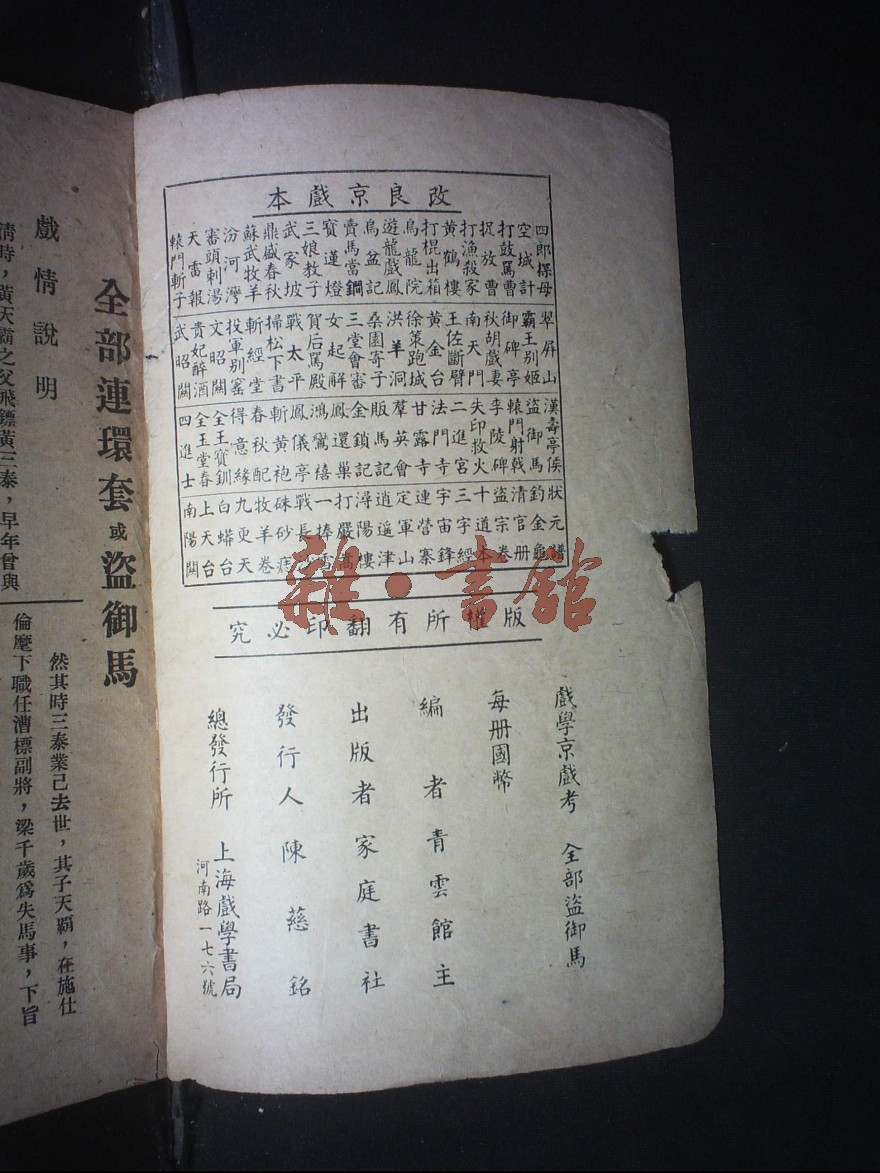 改良京戲本
四郎探母
空城計
打鼓罵曹
捉放曹
打漁殺家
黄鶴樓
打棍出箱
烏龍院
遊龍戲鳳
烏盆記
賣馬當鐧
寶蓮燈
三娘教子
武家坡
鼎盛春秋
蘇武牧羊
汾河灣
審頭刺湯
天雷報
轅門斬子
翠屏山
霸王别姬
御碑亭
秋胡戲妻
南天門
王佐斷臂
黃金台
徐策跑城
洪羊洞
桑園寄子
三堂會審
女起解
賀后罵殿
戰太平
掃松下書
斬經堂
投軍别窑
文昭關
貴妃醉酒
武昭關
漢壽亭侯
盜御馬
轅門射戟
李陵碑
失印救火
二進宮
法門寺
甘露寺
羣英會
販馬記
金鎖記
鳳還巢
鴻鸞禧
鳳儀亭
斬黃袍
春秋配
得意緣
全王寶釧
全玉堂春
四進士
狀元譜
釣金龜
清官册
盜宗卷
十道本
三字經
宇宙鋒
連營寨
定軍山
逍遥津
潯陽樓
打嚴嵩
一捧雪
戰長沙
硃砂痣
牧羊卷
九更天
白蟒台
上天台
南陽關
雜·書館
版權所有翻印必究
戲學京戲考 全部盜御馬
每册國幣
編者青雲館主
出版者家庭書社
發行人陳慈銘
總發行所 上海戲學書局
河南路一七六號
全部連環套或盜御馬
戲情說明
清時，黃天霸之父飛鏢黃三泰，早年曾與
然其時三泰業己去世，其子天霸，在施仕
倫麾下職任漕標副將，梁千歲爲失馬事，下旨